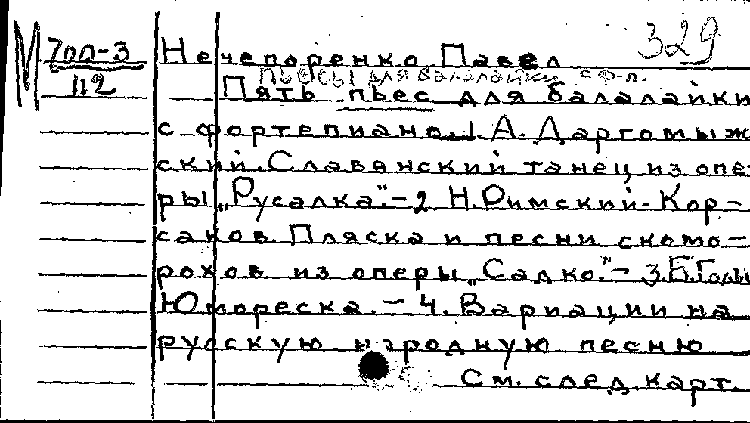 329
М 700-3 Нечепоренко Павел
112 Пьесы для балалайки с ф-п.
Пять пьес для балалайки
с фортепиано. 1. А. Даргомыж
ский. Славянский танец из опе
ры „Русалка".-2 Н. Римский-Кор-
саков. Пляска и песни скомо-
рохов из оперы „Садко."-3. Б. Голы
Юмореска. - 4. Вариации на
русскую народную песню
См. след. карт.